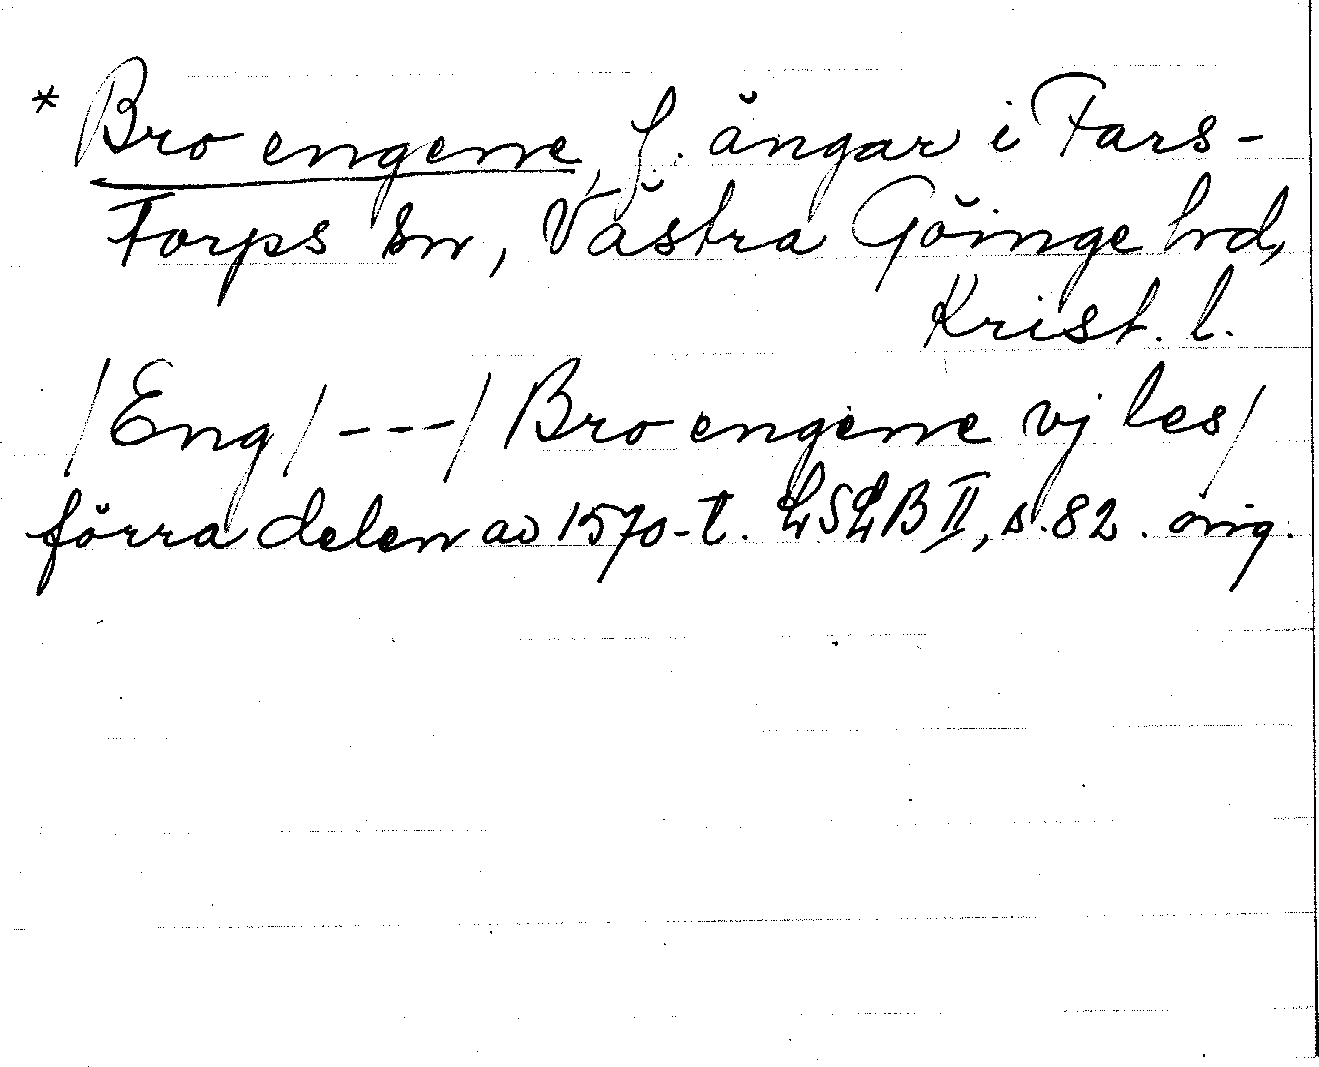 * Bro engene, f. ängar i Fars-
torps sn, Västra Göinge hrd,
Krist. l.
/Eng/ --- / Bro engene vj les/
förra delen av 1570-t. LSLB II, s. 82. orig.